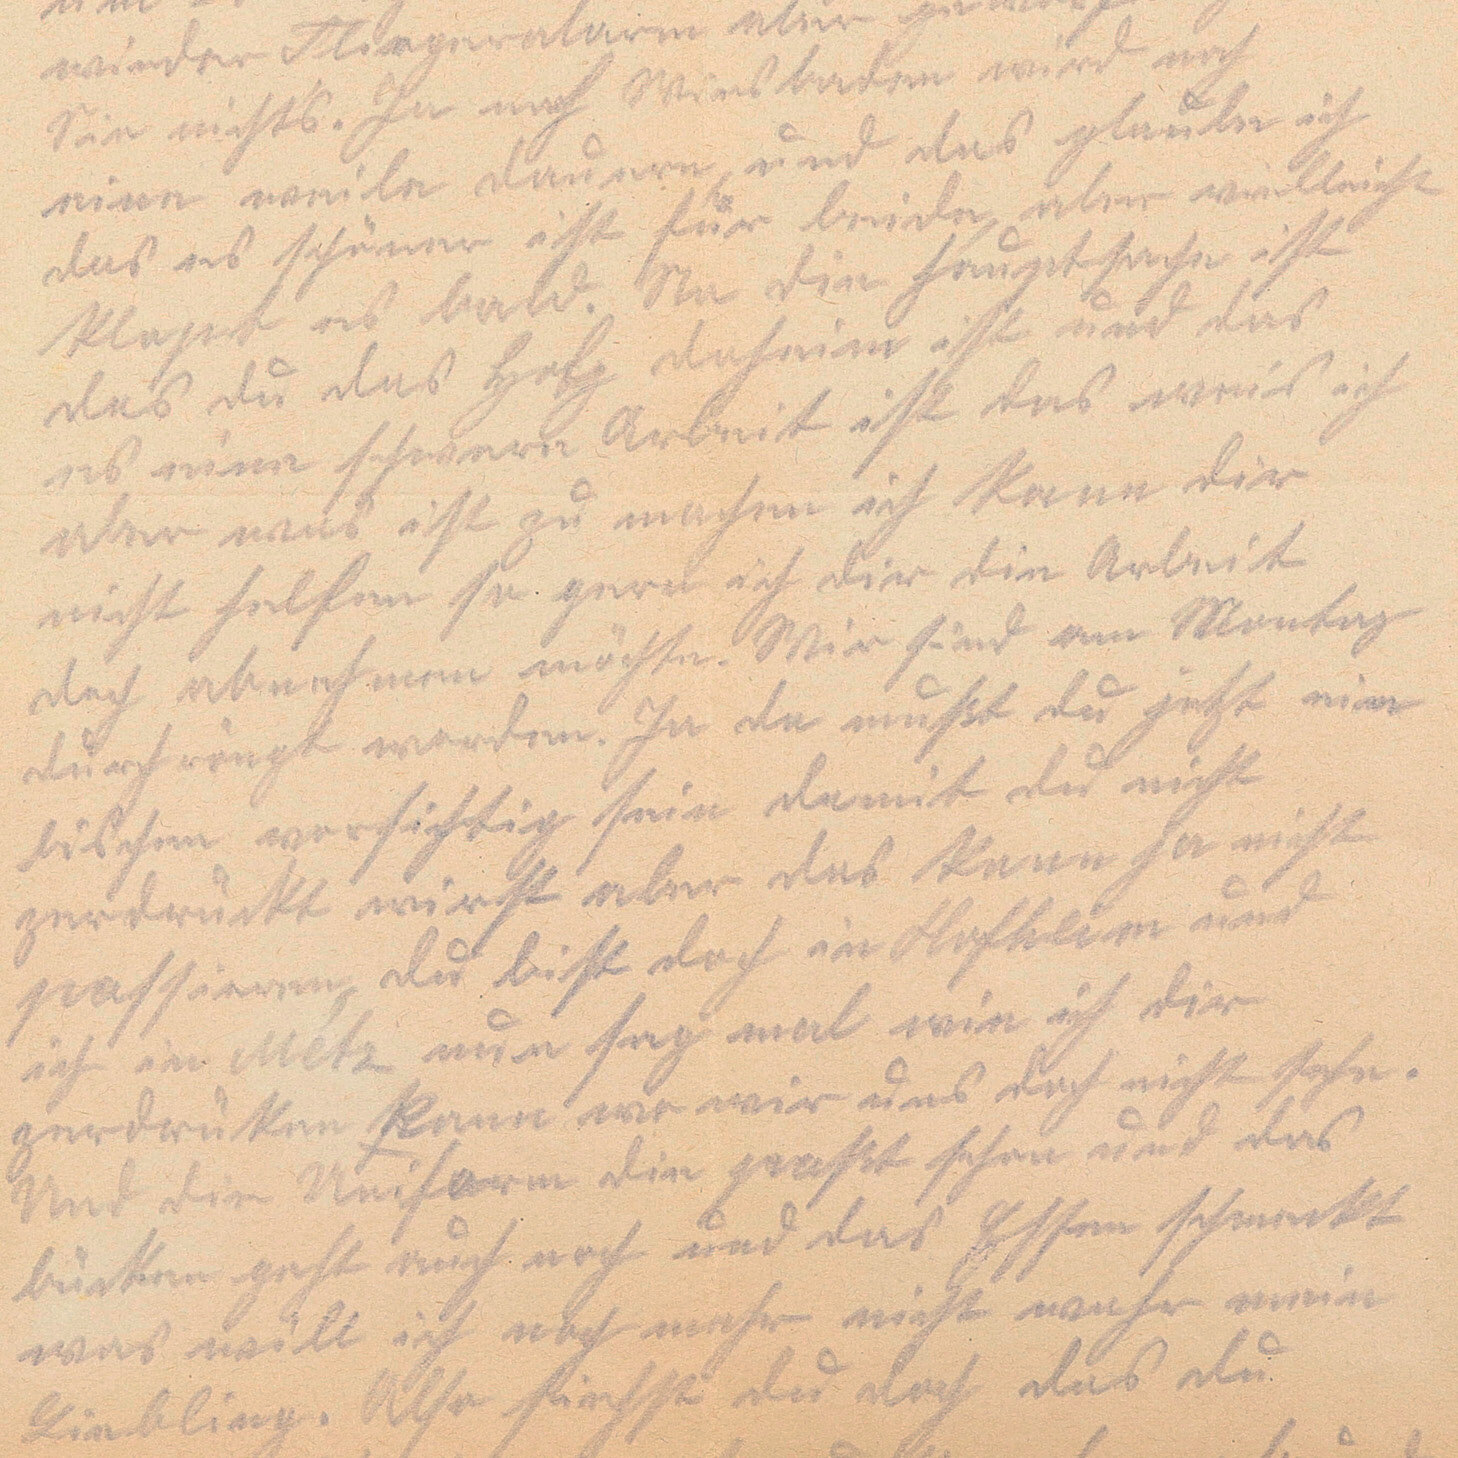 wieder Fliegeralarm aber
Sie nichts. Ja nach Wiesbaden wird noch
eine weile dauern, und das glaube ich
das es schöner ist für beide, aber vielleicht
klapt es bald. Na die Hauptsache ist
das du das Holz daheim ist und das
es eine schwere Arbeit ist das weis ich
aber was ist zu machen ich kann dir
nicht helfen so gern ich dir die Arbeit
doch abnehmen möchte. Wir sind am Montag
durchröngt worden. Ja da mußt du jetzt ein
bischen vorsichtig sein damit du nicht
zerdrückt wirst aber das kann ja nicht
passieren, du bist doch in Hofheim und
ich in Metz nun sag mal wie ich dir
zerdrüken kann wo wir uns doch nicht sehn.
Und die Uniform die paßt schon und das
bücken geht auch noch und das Essen schmeckt
was will ich noch mehr nicht wahr mein
Liebling. Also siehst du doch das du